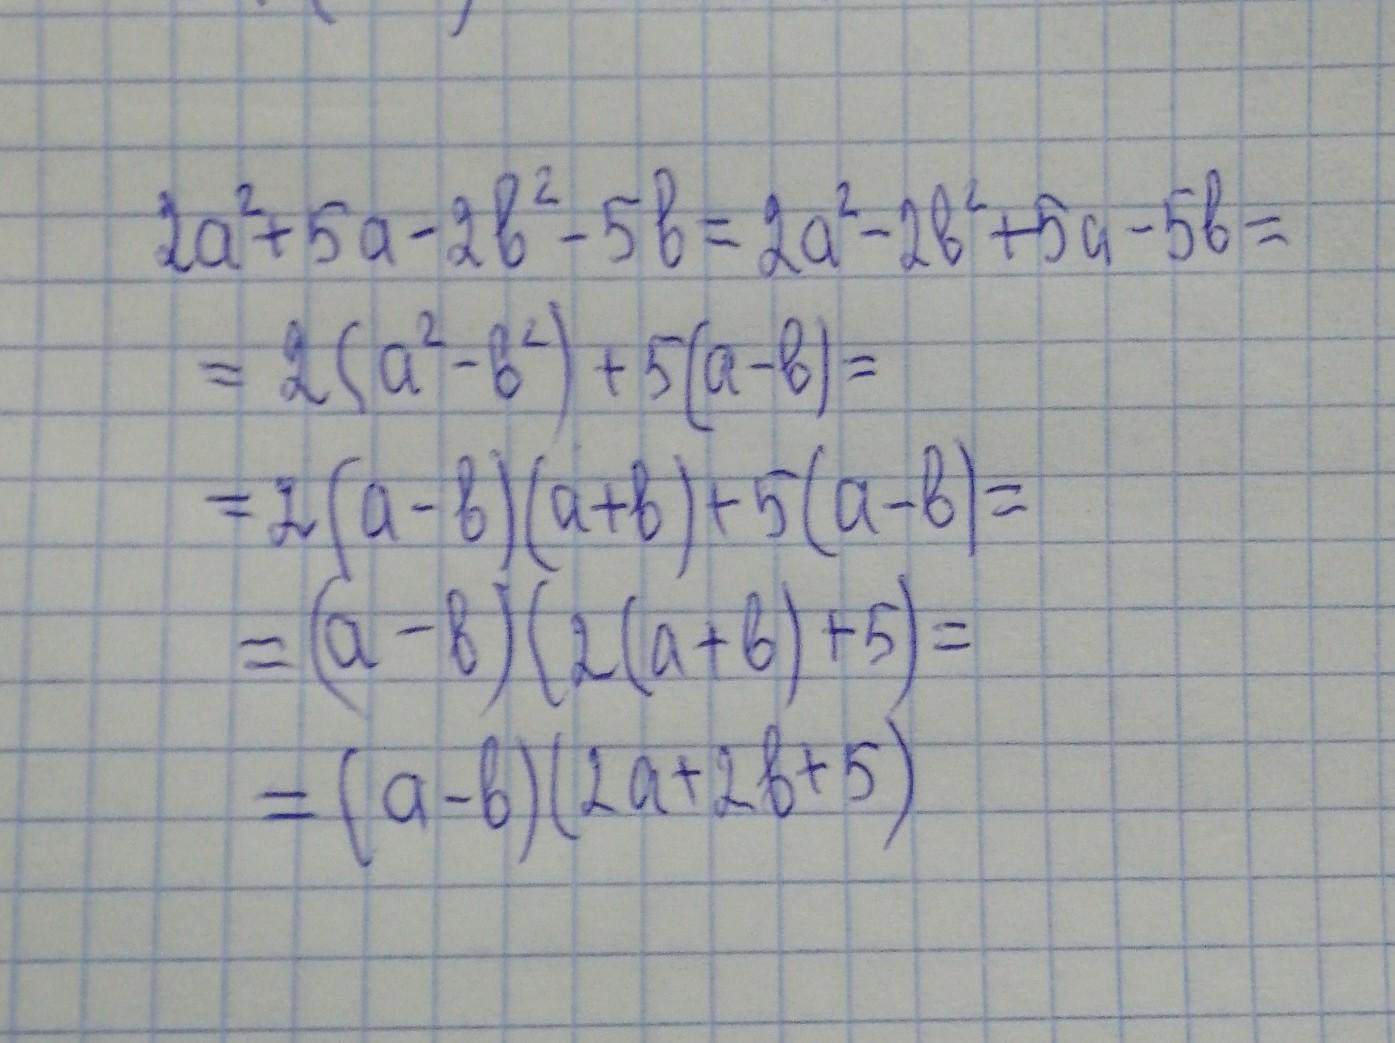 2a²+5a-2b²-5b=2a²-2b²+5a-5b=
=2(a²-b²)+5(a-b)=
=2(a-b)(a+b)+5(a-b)=
=(a-b)(2(a+b)+5)=
=(a-b)(2a+2b+5)